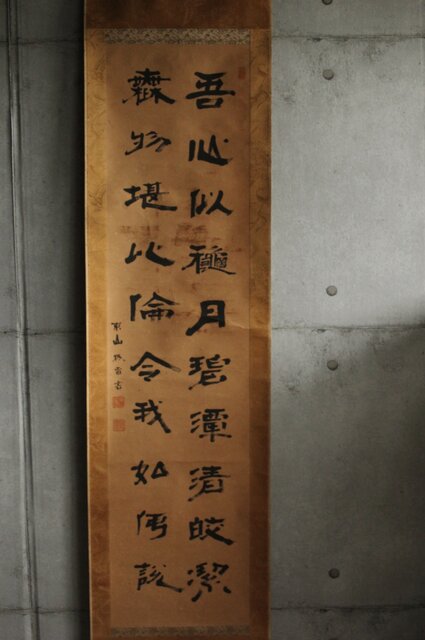 吾心似龝月碧潭清皎潔
無物堪比倫令我如何說
山